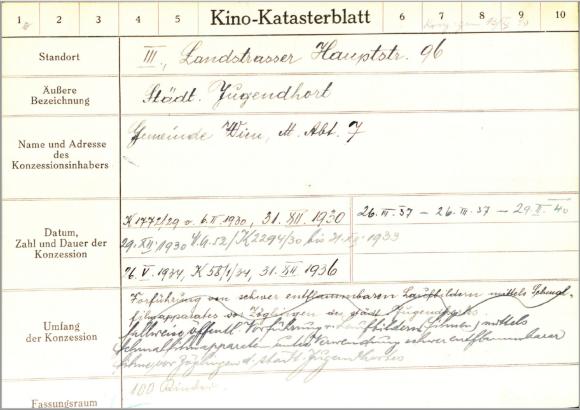 1 2 3 4 5 Kino-Katasterblatt 6 7 8 9 10
Standort III., Landstrasser Hauptstr. 96
Äußere
Bezeichnung Städt. Jugendhort
Name und Adresse
des
Konzessionsinhabers
Gemeinde Wien, M. Abt. 7
Datum,
Zahl und Dauer der
Konzession
K 1772/29 v. 6.II.1930, 31. XII. 1930
26. III. 37 – 26. III. 37 – 29. II. 40
29. XII. 1930 K 2294/30 bis 31. XII. 1933
26. V. 1934, K 58/1/34, 31. XII 1936
Umfang
der Konzession
Vorführung von schwer entflammbaren Laufbildern mittels Schmal-
filmapparates vor Zöglingen des städt. Jugendhortes.
fallweise öffentl. Vorführung Laufbildern mittels
Schmalfilmapparates unter Verwendung schwer entflammbarer
Filme, vor Zöglingen d. städt. Jugendhortes
Fassungsraum 100 Kinder.